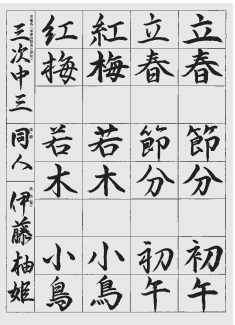 立春 節分 初午
立春 節分 初午
紅梅 若木 小鳥
紅梅 若木 小鳥
三次中三 同人 伊藤柚姫